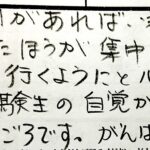 があれば、
たほうが集中
行くようにと心
験生の自覚が
ごろです。がんば